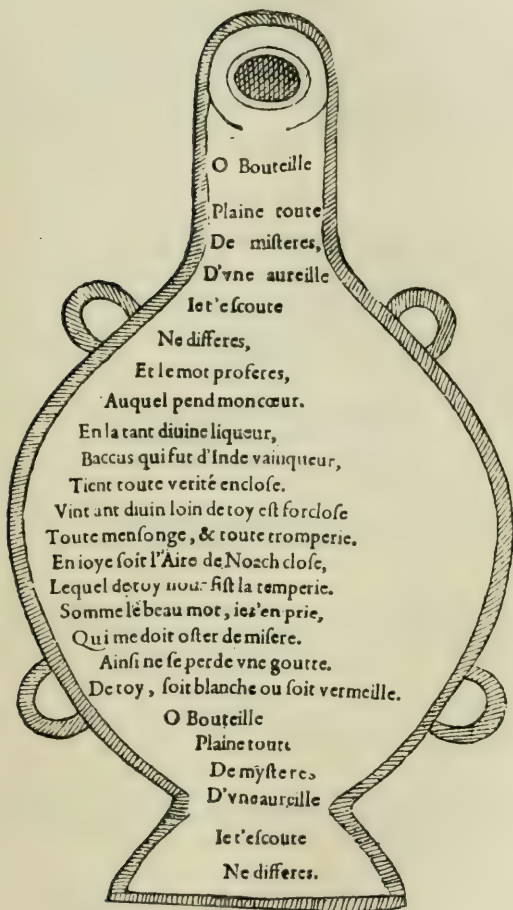 O Bouteille
Plaine toute
De miſteres,
D'vne aureille
Iet'eſcoute
Ne differes,
Et le mot proferes,
Auquel pend mon cœur.
En la tant diuine liqueur,
Baccus qui fut d'Inde vainqueur,
Tient toute verité encloſe.
Vint ant diuin loin de toy eſt forcloſe
Toute menſonge, & toute tromperie.
En ioye ſoit l'Aire de Noach cloſe,
Lequel de toy nous fiſt la temperie.
Somme le beau mot, iet'en prie,
Qui me doit oſter de miſere.
Ainſi ne ſe perde vne goutte.
De toy, ſoit blanche ou ſoit vermeille.
O Bouteille
Plaine toute
De myſteres
D'vne aureille
Iet'eſcoute
Ne differes.